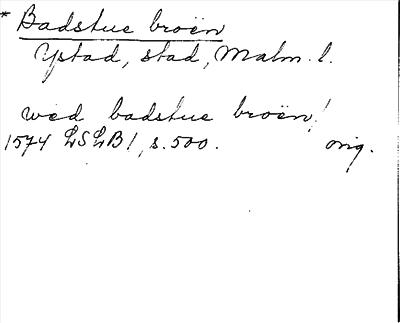 * Badstue broën
Ystad, stad, Malm. l.
wed badstue broën!
1574 LSLB1, s. 500. orig.